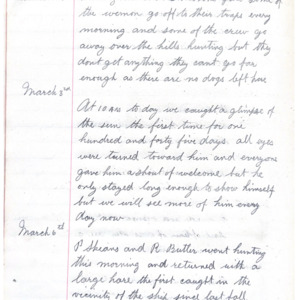 of the women go off to their traps every
morning and some of the crew go
away over the hills hunting but they
dont get anything they cant go far
enough as there are no dogs left here
March 2nd
At 10 AM to day we caught a glimpse of
the sun the first time for one
hundred and forty five days. all eyes
were turned toward him and everyone
gave him a shout of welcome but he
only stayed long enough to show himself
but we will see more of him every
day now
March 6th
P Shears and R Butler went hunting
this morning and returned with a
large hare the first caught in the
vicinity of the ship since last fall